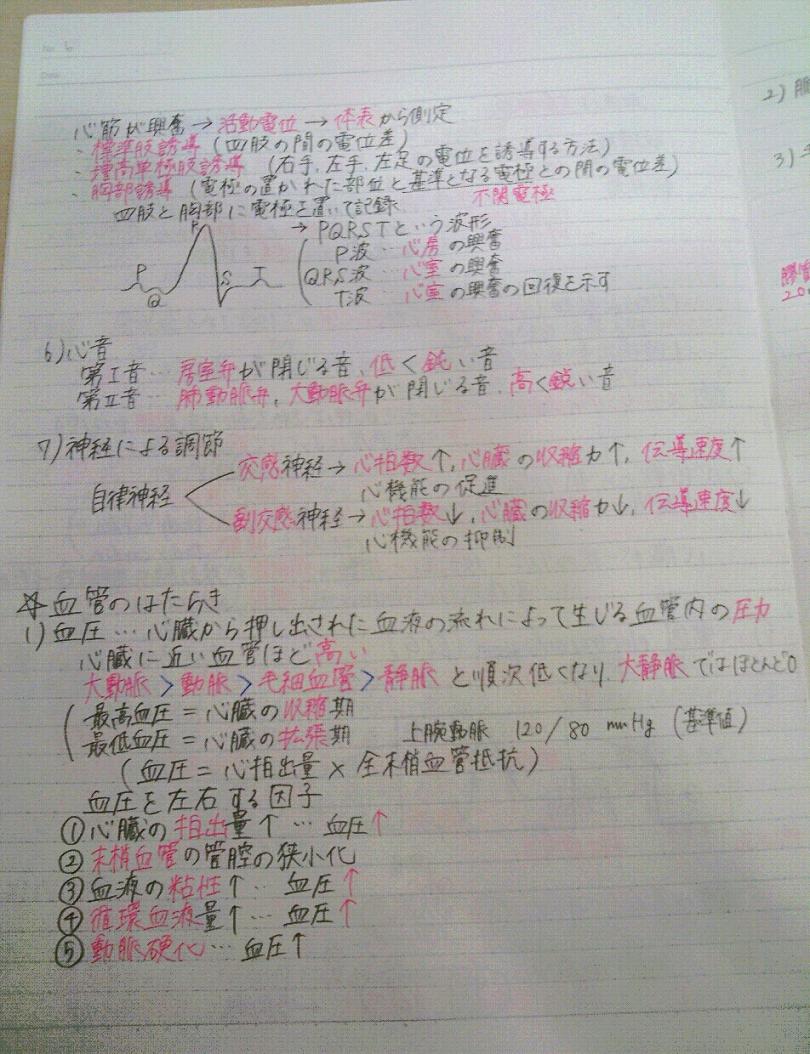 No. 6
Date
心筋が興奮 → 活動電位 → 体表から測定
・標準肢誘導 (四肢の間の電位差)
・増高単極肢誘導 (右手、左手、左足の電位を誘導する方法)
・胸部誘導 (電極の置かれた部位と基準となる電極との間の電位差)
不関電極
四肢と胸部に電極を置いて記録
→ PQRSTという波形
P波 … 心房の興奮
QRS波 … 心室の興奮
T波 … 心室の興奮の回復を示す
P Q R S T
6) 心音
第Ⅰ音 … 房室弁が閉じる音、低く鈍い音
第Ⅱ音 … 肺動脈弁、大動脈弁が閉じる音、高く鋭い音
7) 神経による調節
自律神経
交感神経 → 心拍数↑、心臓の収縮力↑、伝導速度↑
心機能の促進
副交感神経 → 心拍数↓、心臓の収縮力↓、伝導速度↓
心機能の抑制
☆血管のはたらき
1) 血圧 … 心臓から押し出された血液の流れによって生じる血管内の圧力
心臓に近い血管ほど高い
大動脈 > 動脈 > 毛細血管 > 静脈 と順次低くなり、大静脈ではほとんど0
最高血圧 = 心臓の収縮期
最低血圧 = 心臓の拡張期
上腕動脈 120/80 mmHg (基準値)
(血圧 = 心拍出量 × 全末梢血管抵抗)
血圧を左右する因子
① 心臓の拍出量↑ … 血圧↑
② 末梢血管の管腔の狭小化
③ 血液の粘性↑ … 血圧↑
④ 循環血液量↑ … 血圧↑
⑤ 動脈硬化 … 血圧↑
2)
3)
膠質
20